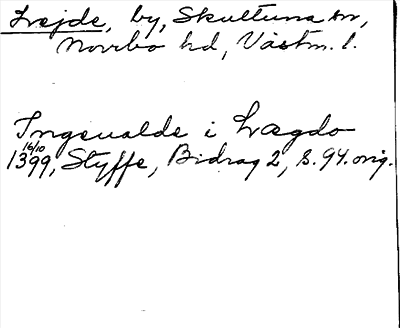 Lvejde, by, Skultuna sn,
Norrbo hd, Västm. l.
Ingeualde i Lvægdo
16/10
1399, Styffe, Bidrag 2, s. 94. orig.